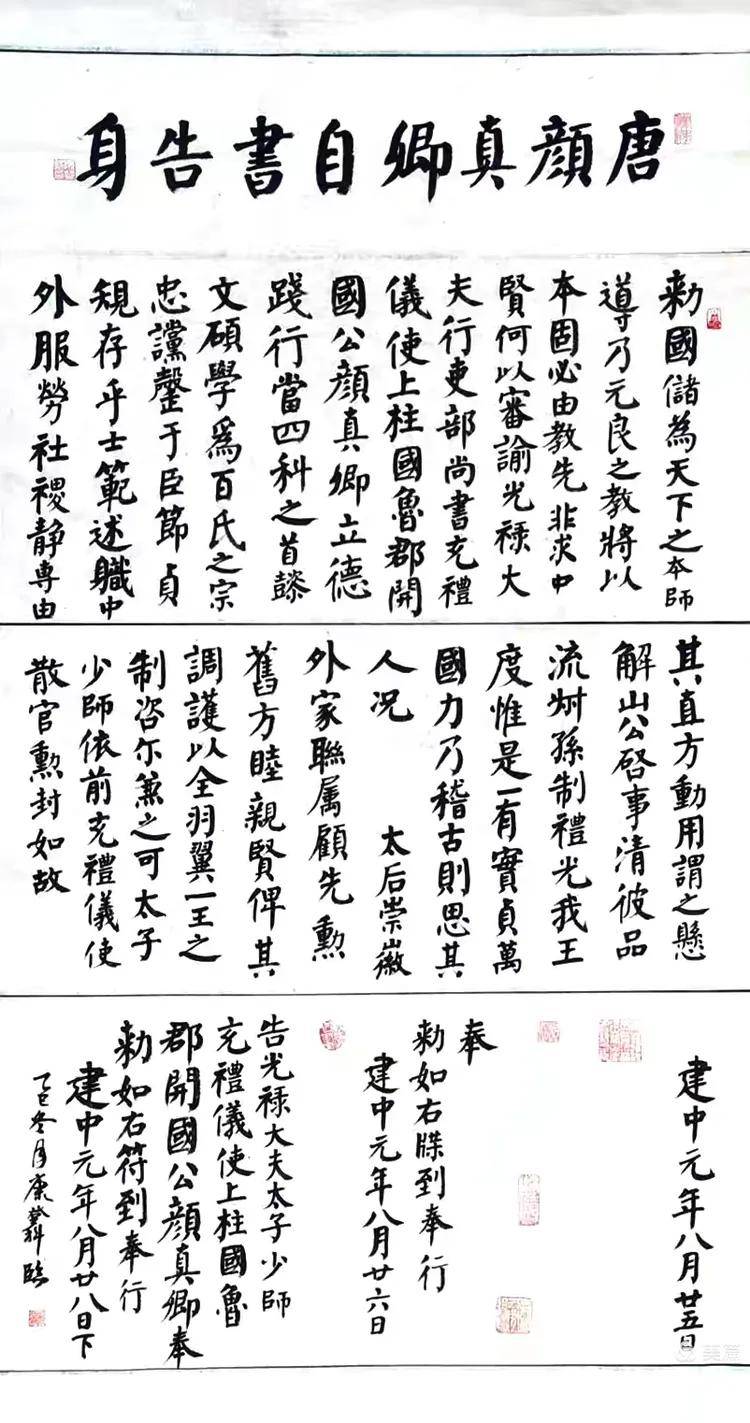 唐顏真卿自書告身
勅國儲為天下之本師
導乃元良之教將以
本固必由教先非求中
賢何以審諭光祿大
夫行吏部尚書充禮
儀使上柱國魯郡開
國公顏真卿立德
踐行當四科之首懿
文碩學為百氏之宗
忠讜罄于臣節貞
規存乎士範述職中
外服勞社稷靜專由
其直方動用謂之懸
解山公啓事清彼品
流叔孫制禮光我王
度惟是一有實貞萬
國力乃稽古則思其
人況 太后崇徽
外家聯属顧先勲
舊方睦親賢俾其
調護以全羽翼一王之
制咨尔兼之可太子
少師依前充禮儀使
散官勲封如故
建中元年八月廿五日
奉
勅如右牒到奉行
建中元年八月廿六日
告光祿大夫太子少師
充禮儀使上柱國魯
郡開國公顏真卿奉
勅如右符到奉行
建中元年八月廿八日下
乙巳冬月康 臨
美篇